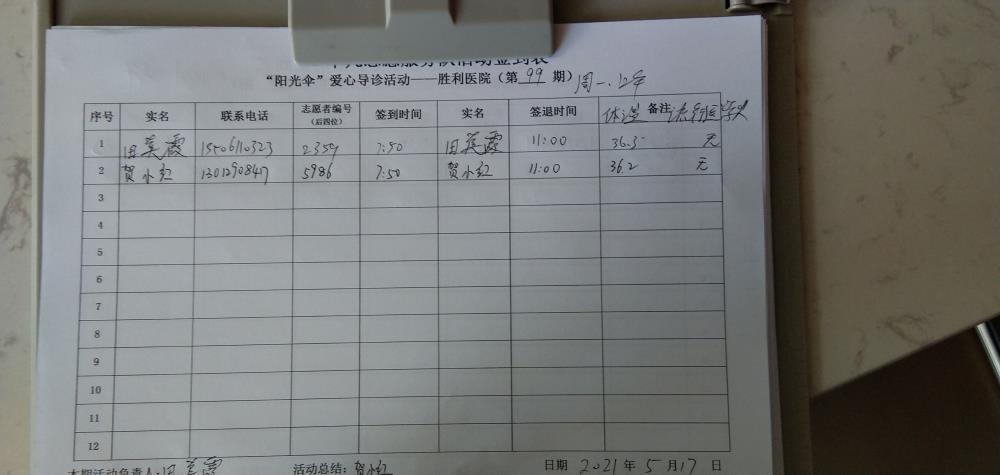 志愿服务队活动签到表
“阳光伞”爱心导诊活动——胜利医院（第 99 期）周一.上午
序号 实名 联系电话 志愿者编号（后四位） 签到时间 实名 签退时间 体温 备注 流行医学史
1 田美霞 15506110323 2359 7:50 田美霞 11:00 36.3 无
2 贺小红 1301290847 5986 7:50 贺小红 11:00 36.2 无
3
4
5
6
7
8
9
10
11
12
本期活动负责人：田美霞 活动总结：贺小红 日期 2021 年 5 月 17 日